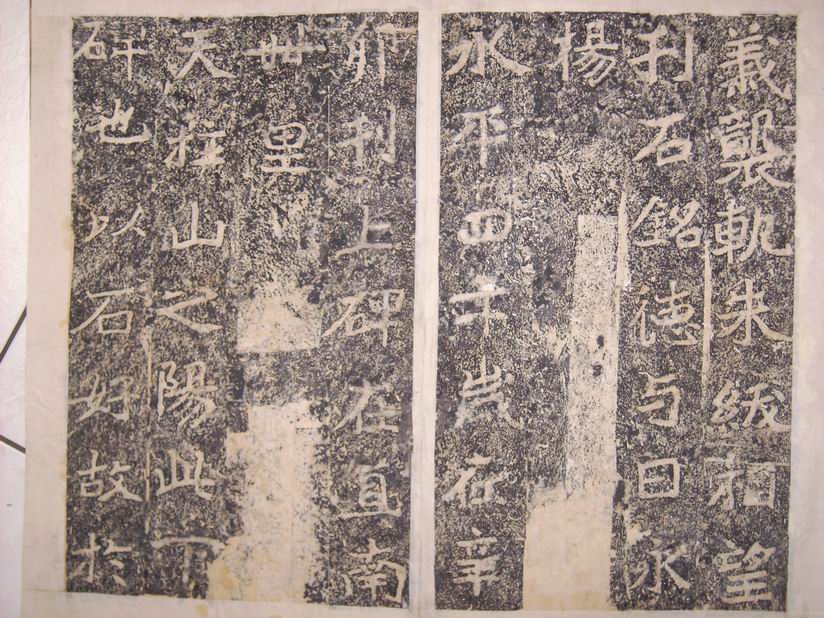 義襲軌朱紱相望
刊石銘德与日永
揚
永平四年歲在辛
卯刊上碑在直南
卌里
天柱山之陽此下
碑也以石好故於